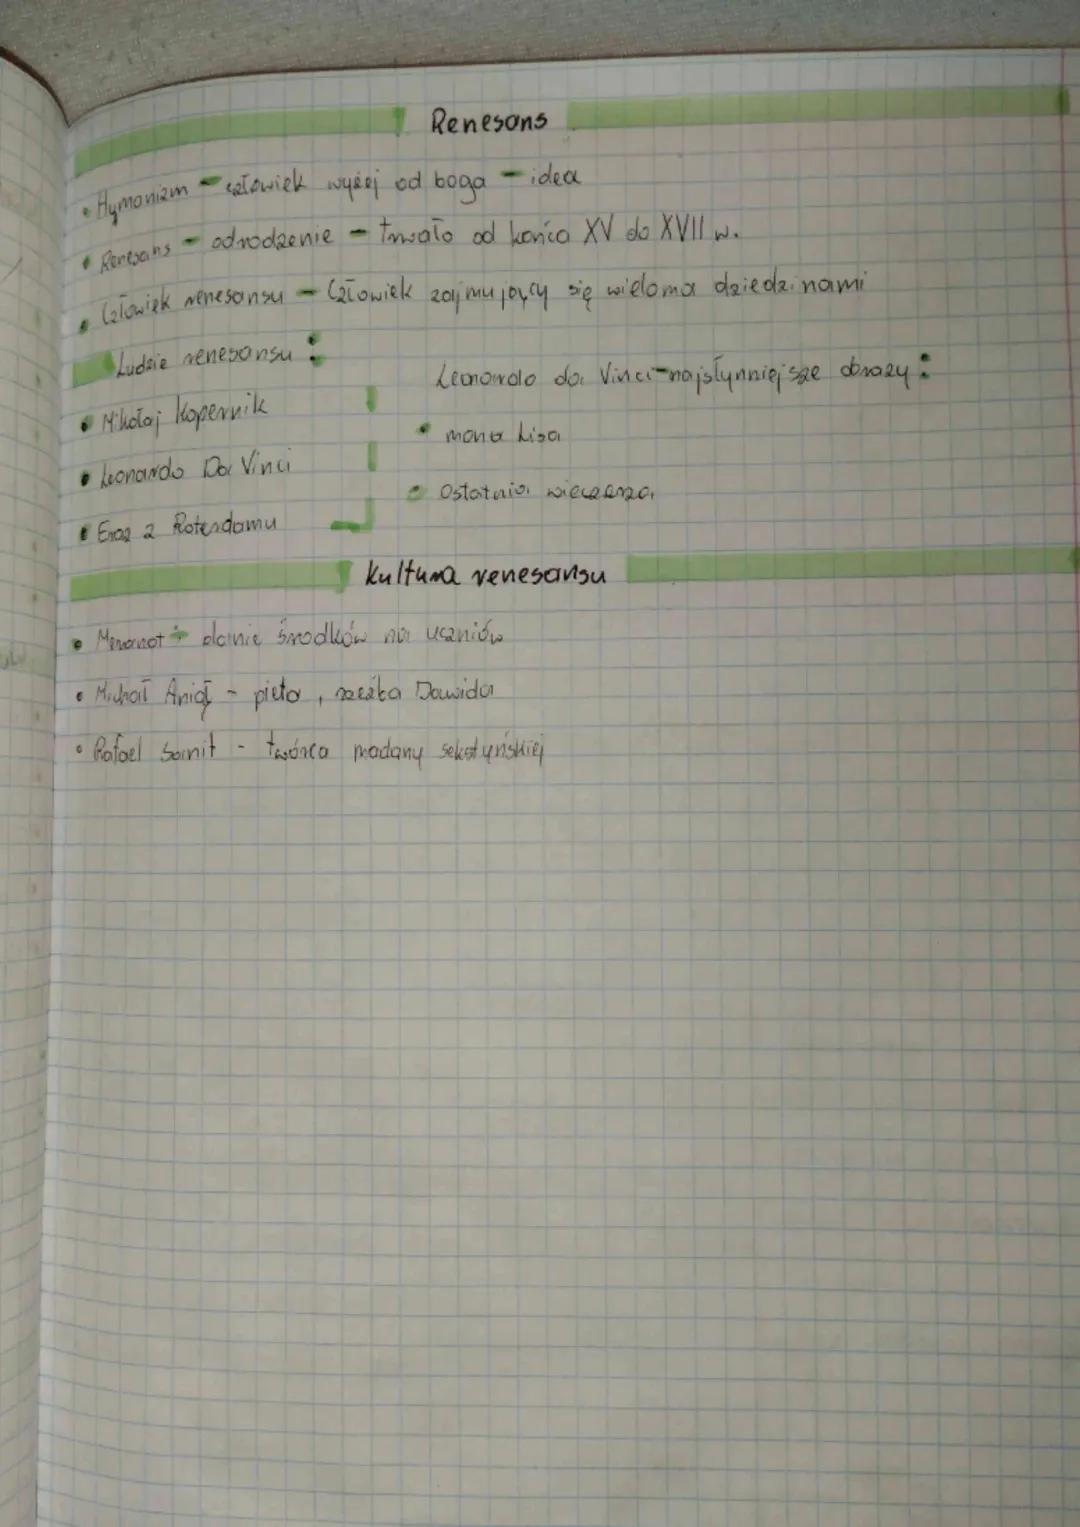 Renesans
• Hymanizm - człowiek wyżej od boga - idea
• Renesans - odrodzenie - trwało od końca XV do XVII w.
• Człowiek renesansu - Człowiek zajmujący się wieloma dziedzinami
Ludzie renesansu :
• Mikołaj Kopernik
• Leonardo Da Vinci
• Eraz z Roterdamu
Leonardo da Vinci - najsłynniejsze obrazy :
• mona Lisa
• Ostatnia wieczerza
Kultura renesansu
• Mecenat - danie środków na uczniów
• Michał Anioł - pieta, rzeźba Dawida
• Rafael Sainit - twórca madany sekstyńskiej